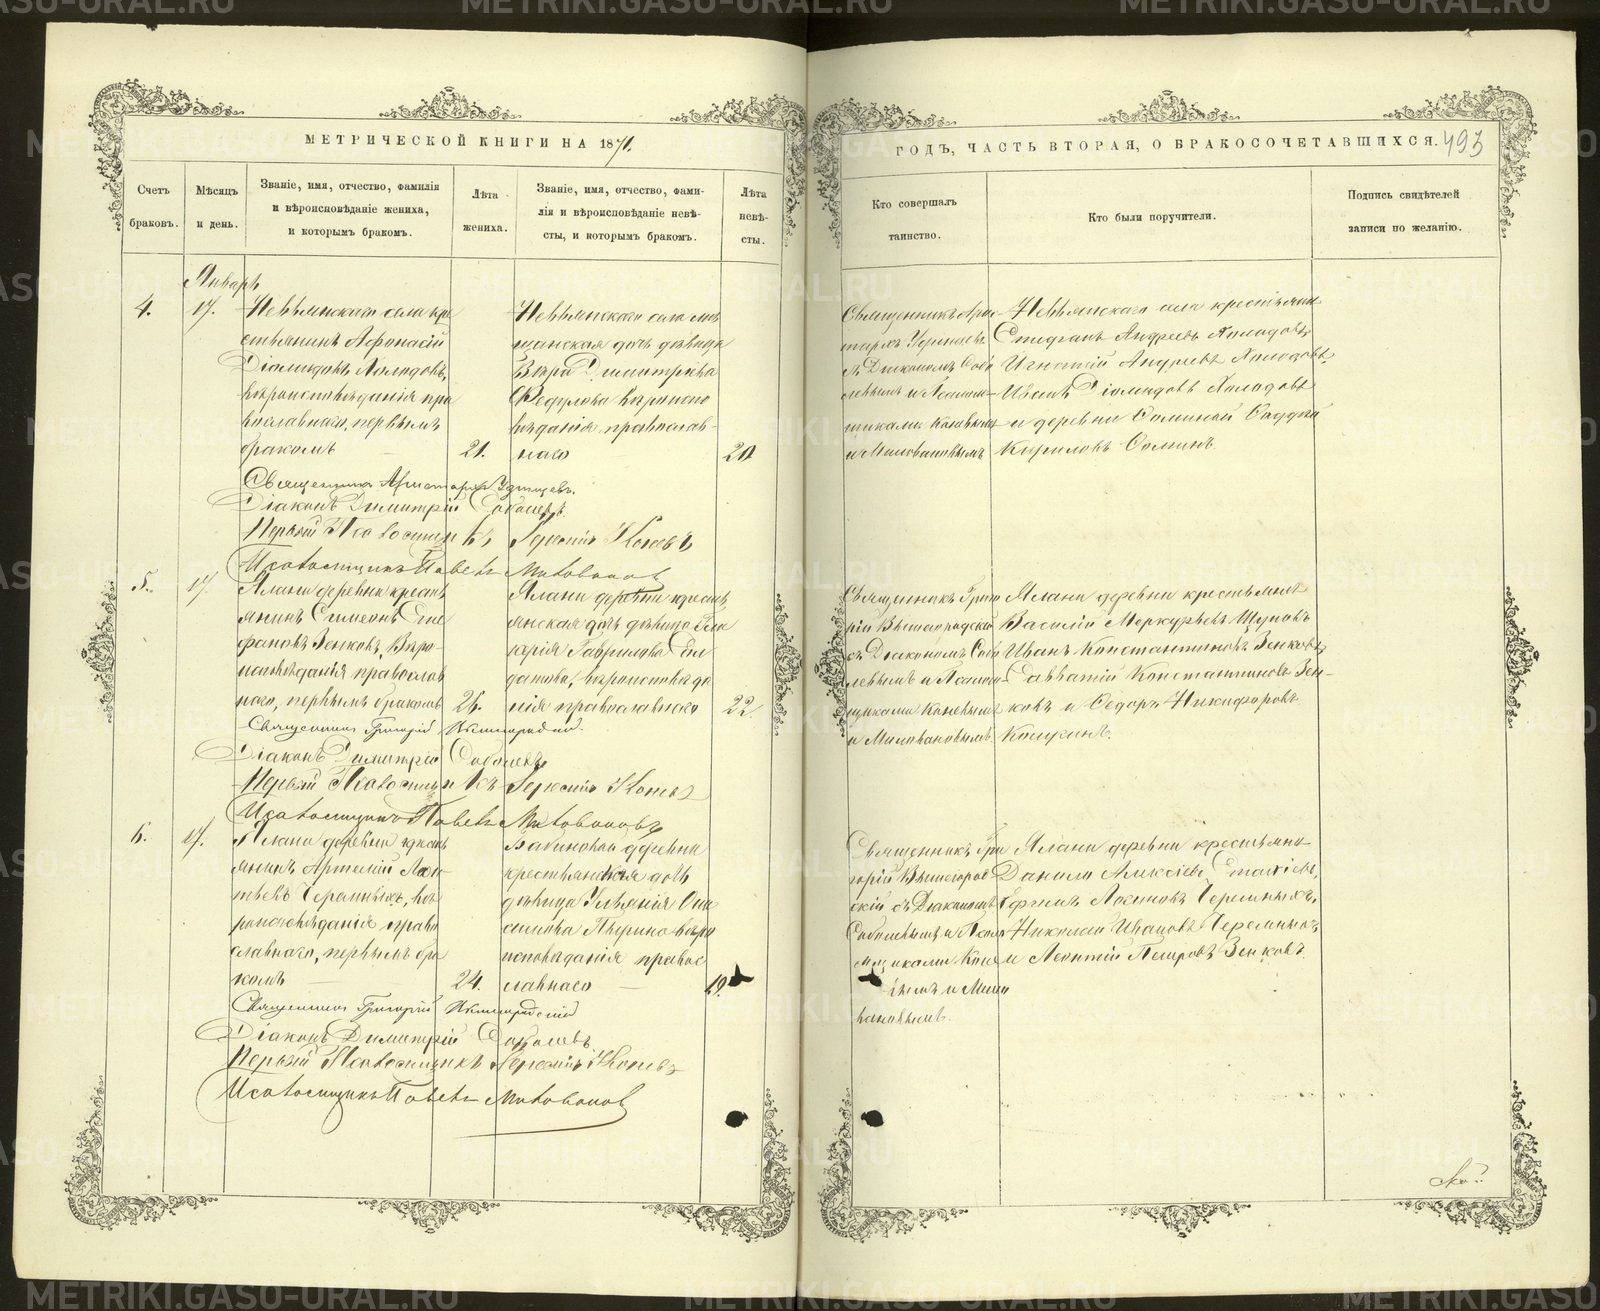 МЕТРИЧЕСКОЙ КНИГИ НА 1871.
Счетъ браковъ.
Мѣсяцъ и день.
Званіе, имя, отчество, фамилія
и вѣроисповѣданіе жениха,
и которымъ бракомъ.
Лѣта жениха.
Званіе, имя, отчество, фами-
лія и вѣроисповѣданіе невѣ-
сты, и которымъ бракомъ.
Лѣта невѣ-
сты.
Январь
4.
17.
Невьянскаго села кре
стьянинъ Афонасій
Діомидовъ Холодовъ,
вѣроисповѣданія пра
вославнаго, первымъ
бракомъ
21.
Невьянскаго села мѣ
щанская дочь дѣвица
Вѣра Димитріева
Федулова вѣроиспо
вѣданія православ-
наго
20
Священникъ Аристархъ
Діаконъ Димитрій Соболевъ
Первый Псаломщикъ Коневъ
Псаломщикъ Павелъ Миловановъ
5.
17.
Ялани деревни крест
янинъ Симеонъ Епи
фановъ Зенковъ, Вѣро
исповѣданія православ
наго, первымъ бракомъ
25.
Ялани деревни крест
янская дочь дѣвица
Гаврилова Ели
вѣроисповѣда
нія православнаго
22.
Священникъ Григорій Вышегородскій.
Діаконъ Димитрій Соболевъ
Первый Псаломщикъ Коневъ
Псаломщикъ Павелъ Миловановъ
6.
17.
Ялани деревни крест
янинъ Артемій Лаѵ
Черемныхъ, вѣ
роисповѣданія право
славнаго, первымъ бра
комъ
24.
Бабиновой деревни
крестьянская дочь
дѣвица Ульянія Они
симова вѣро
исповѣданія правос
лавнаго
19.
Священникъ Григорій Вышегородскій
Діаконъ Димитрій Соболевъ
Первый Псаломщикъ Коневъ
Псаломщикъ Павелъ Миловановъ
ГОДЪ, ЧАСТЬ ВТОРАЯ, О БРАКОСОЧЕТАВШИХСЯ.
493
Кто совершалъ
таинство.
Кто были поручители.
Подпись свидѣтелей
записи по желанію.
Священникъ Ари
стархъ
съ Діакономъ Собо
левымъ и Псалом-
щиками Коневымъ
и Миловановымъ
Невьянскаго села крестьяни
Стефанъ Андреевъ Холодовъ,
Игнатій Андреевъ Холодовъ,
Иванъ Діомидовъ Холодовъ
и деревни Соминой
Кириловъ Соминъ.
Священникъ Григо
рій Вышегородскій
съ Діакономъ Собо
левымъ и Псалом-
щиками Коневымъ
и Миловановымъ
Ялани деревни крестьяне
Василій Меркурьевъ Шуповъ
Иванъ Константиновъ Зенковъ,
Савватій Константиновъ Зен-
ковъ и Ѳедоръ Никифоровъ
Священникъ Гри
горій Вышегород
скій съ Діакономъ
Соболевымъ и Псало
мщиками Кон
евымъ и Мило
вановымъ.
Ялани деревни крестьяне
Данило Алексѣевъ
Ефимъ Черемныхъ,
Николай Ивановъ Черемныхъ,
и Леонтій Петровъ Зенковъ.
METRIKI.GASO-URAL.RU